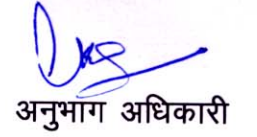 अनुभाग अधिकारी